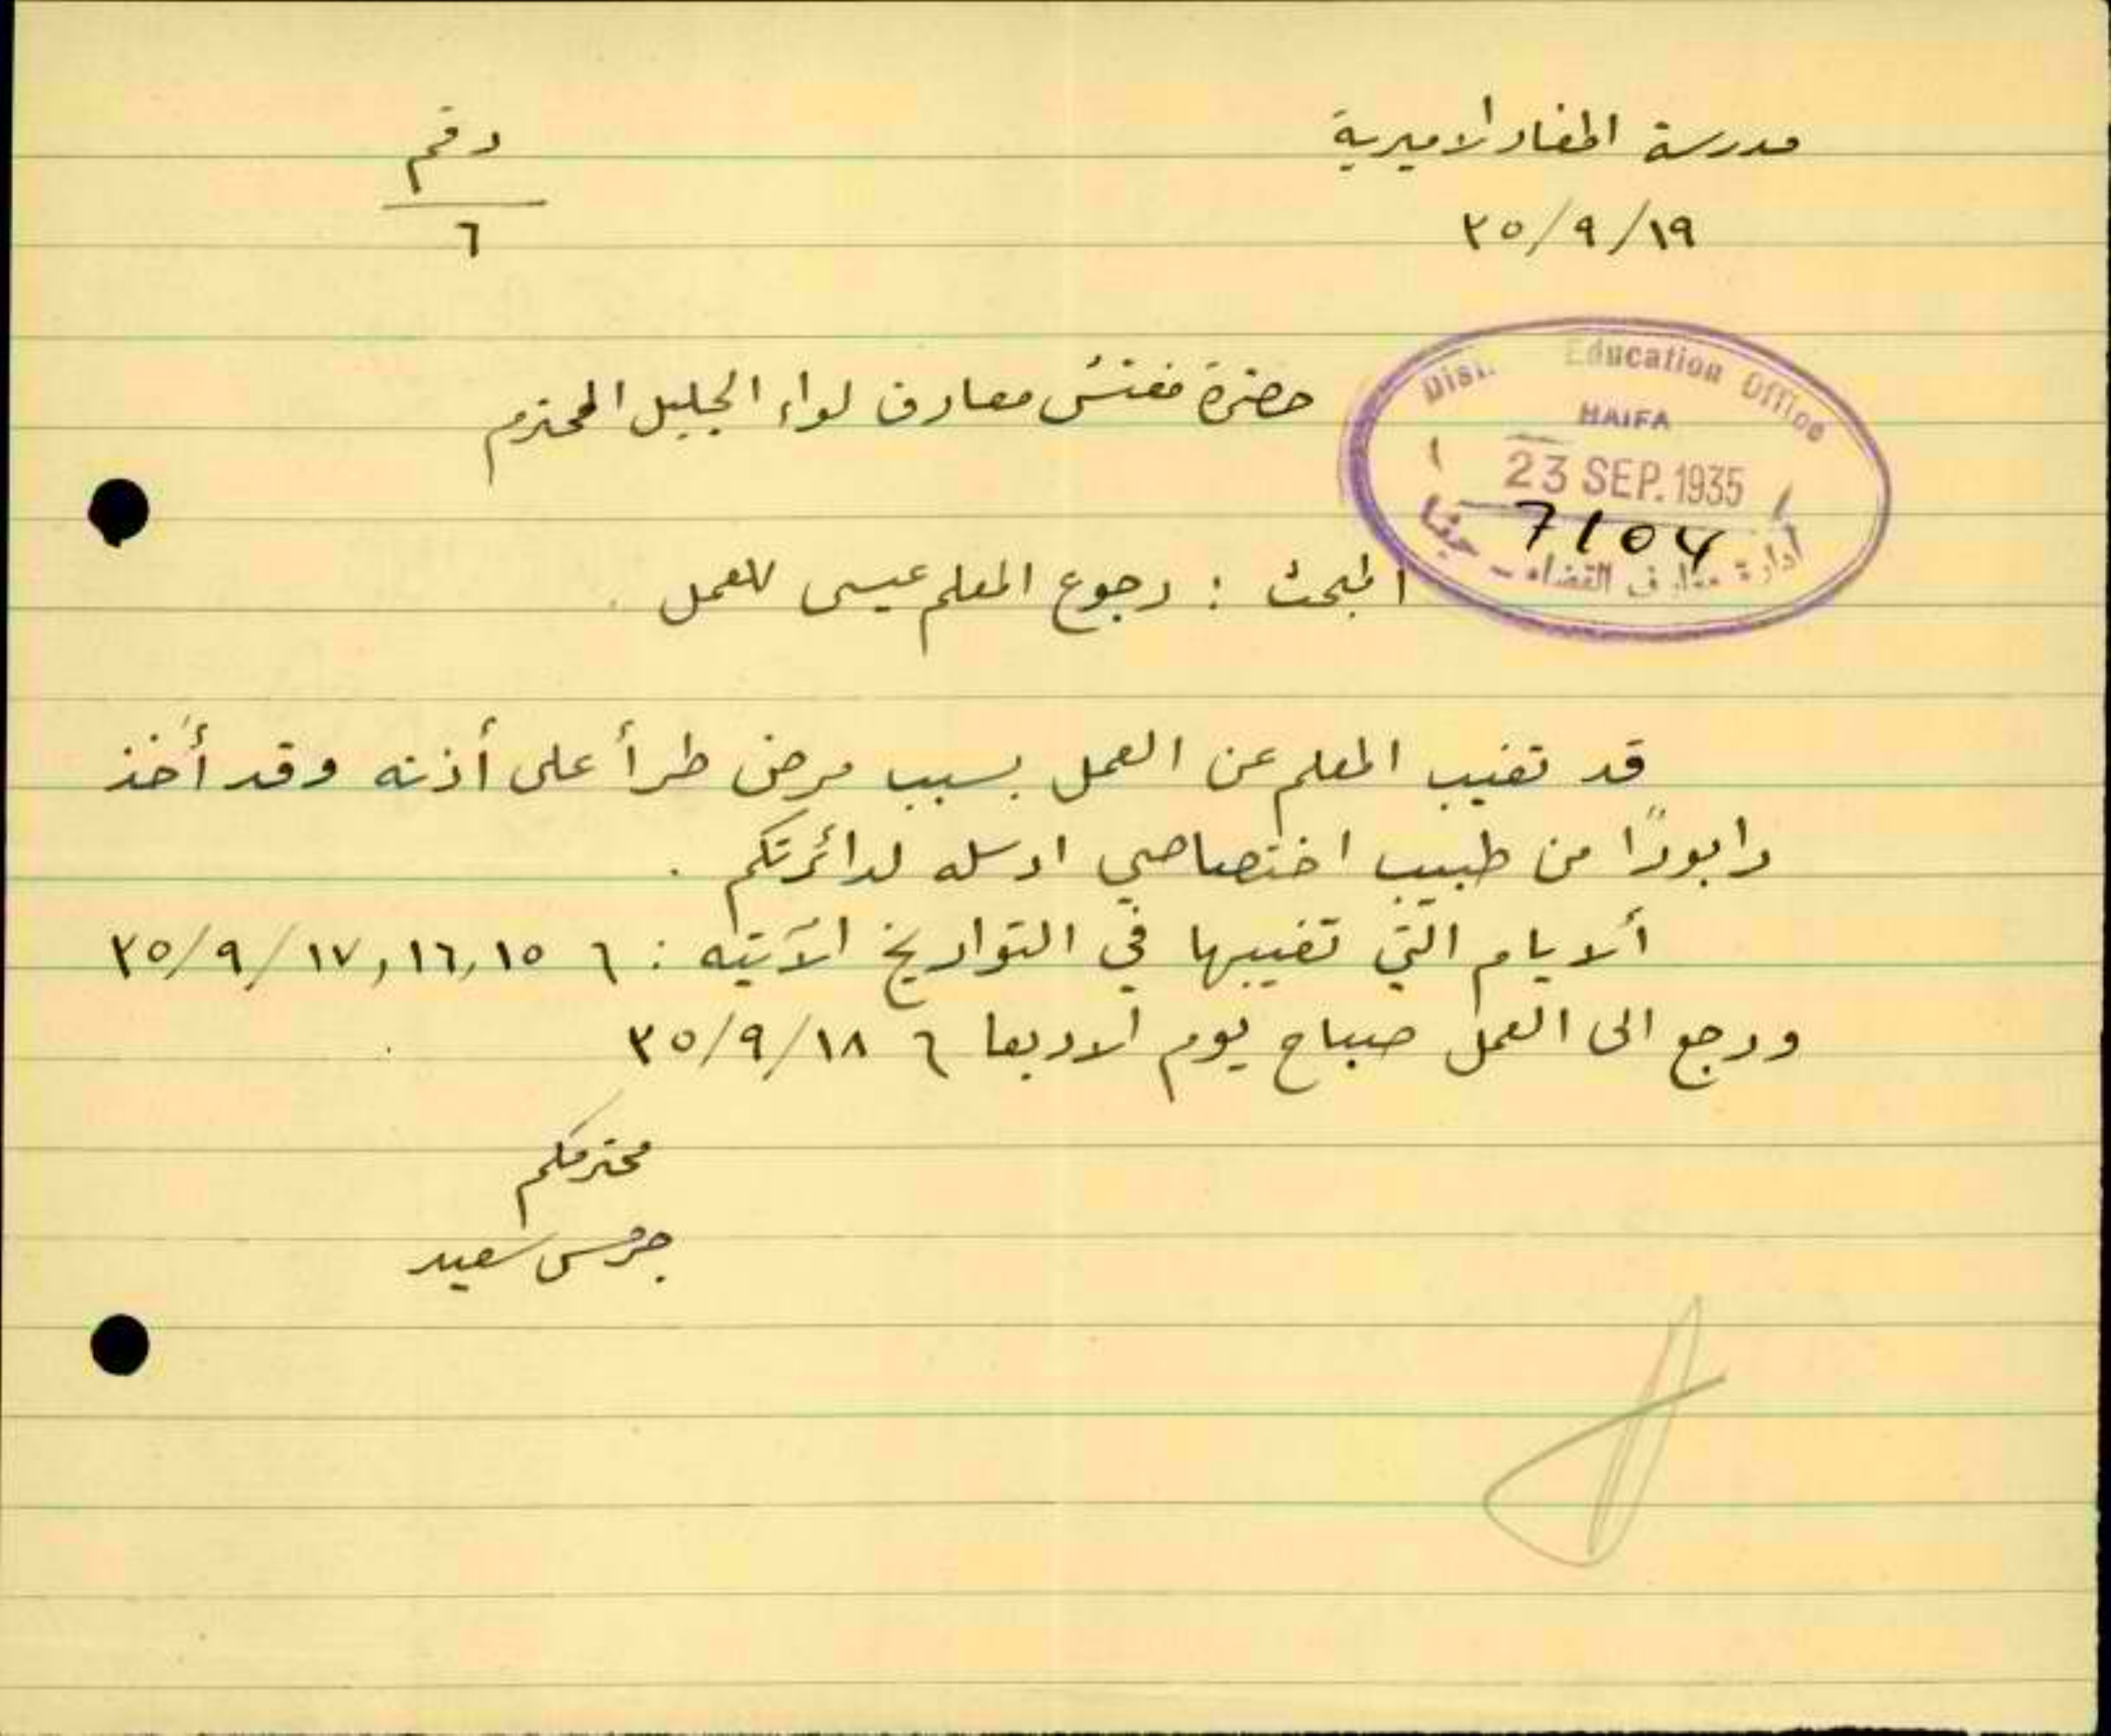 مدرسة المغار الاميرية
رقم
٦
١٩/٩/٣٥
Dist. Education Office
HAIFA
23 SEP. 1935
7104
ادارة معارف القضاء - حيفا
حضرة مفتش معارف لواء الجليل المحترم
المبحث : رجوع المعلم عيسى للعمل .
قد تغيب المعلم عن العمل بسبب مرض طرأ على أذنه وقد أخذ
رابورًا من طبيب اختصاصي ارسله لدائرتكم .
ألايام التي تغيبها في التواريخ الآتيه : ٦ ١٥,١٦,١٧/٩/٣٥
ورجع الى العمل صباح يوم الاربعا ٦ ١٨/٩/٣٥
محترمكم
جرجس سعيد